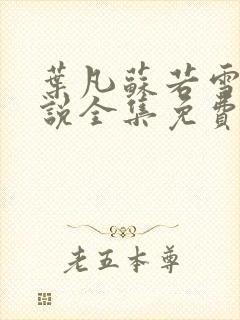 葉凡蘇若雪
說全集免費
老五本尊